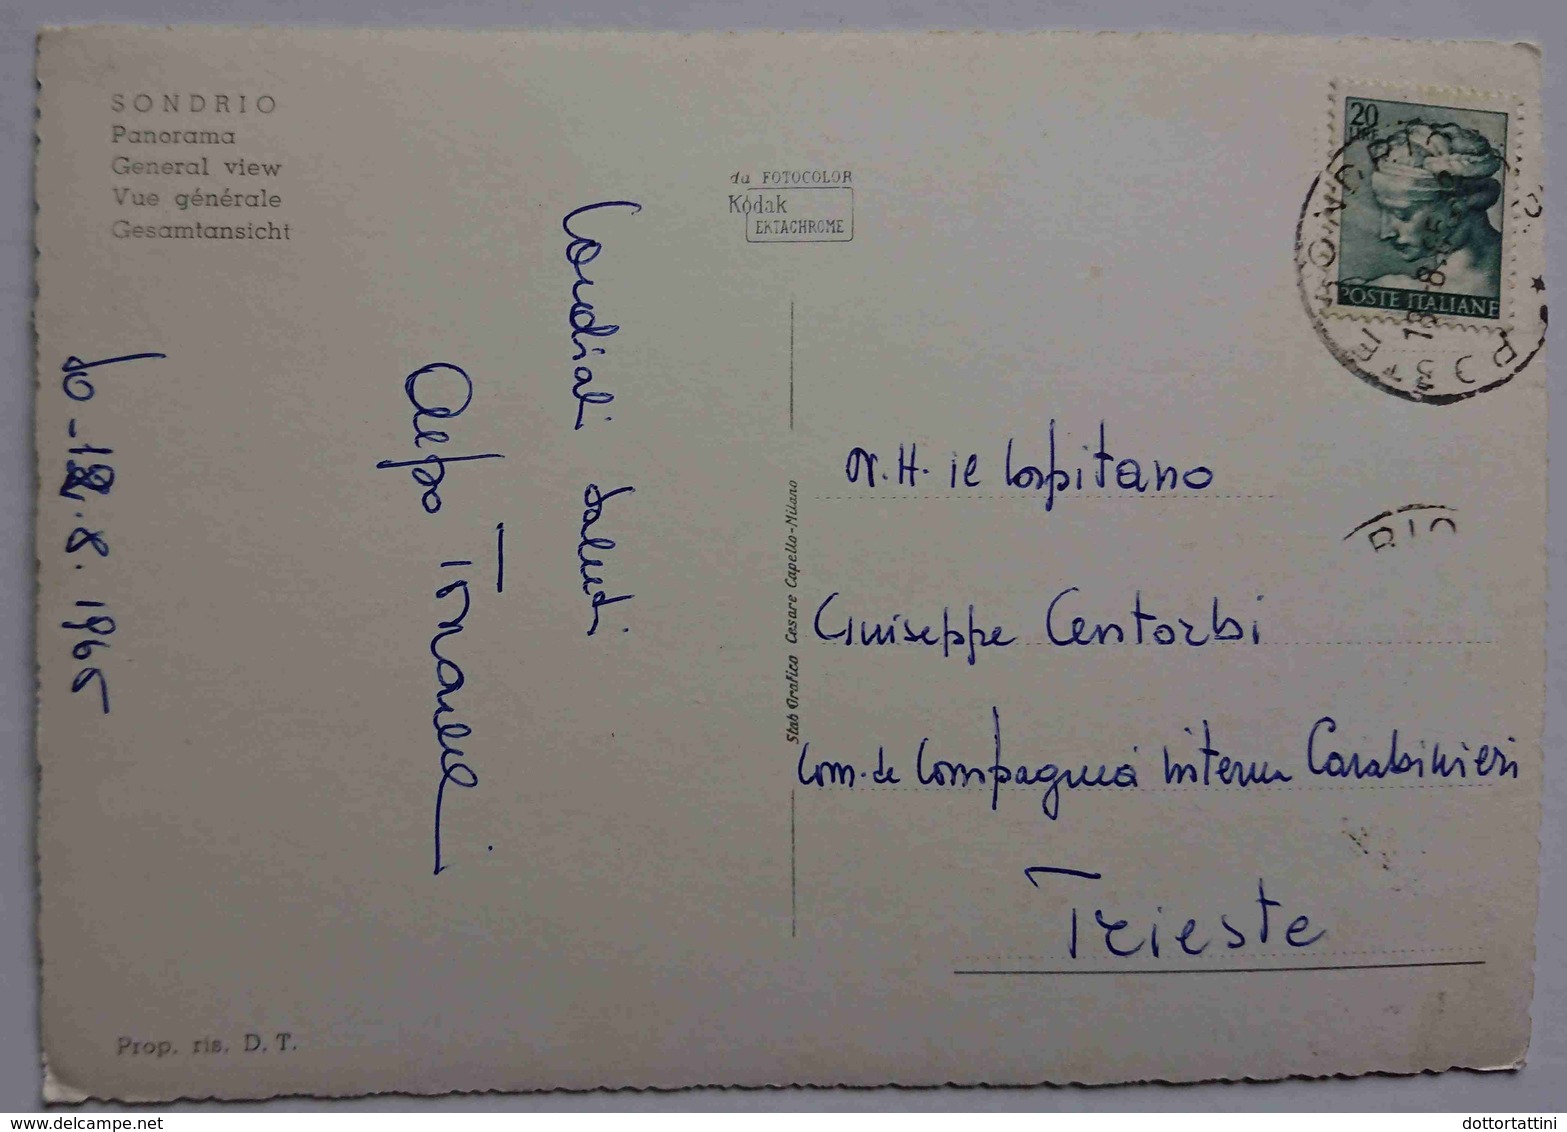 SONDRIO
Panorama
General view
Vue générale
Gesamtansicht
da FOTOCOLOR
Kodak
EKTACHROME
20
LIRE
POSTE ITALIANE
SONDRIO
POSTE
18-8-65
RIO
Cordiali Saluti
So - 18.8.1965
N.H. il Capitano
Giuseppe Centorbi
Com.te Compagnia Interna Carabinieri
Trieste
Stab Grafico Cesare Capello-Milano
Prop. ris. D. T.
dottortattini